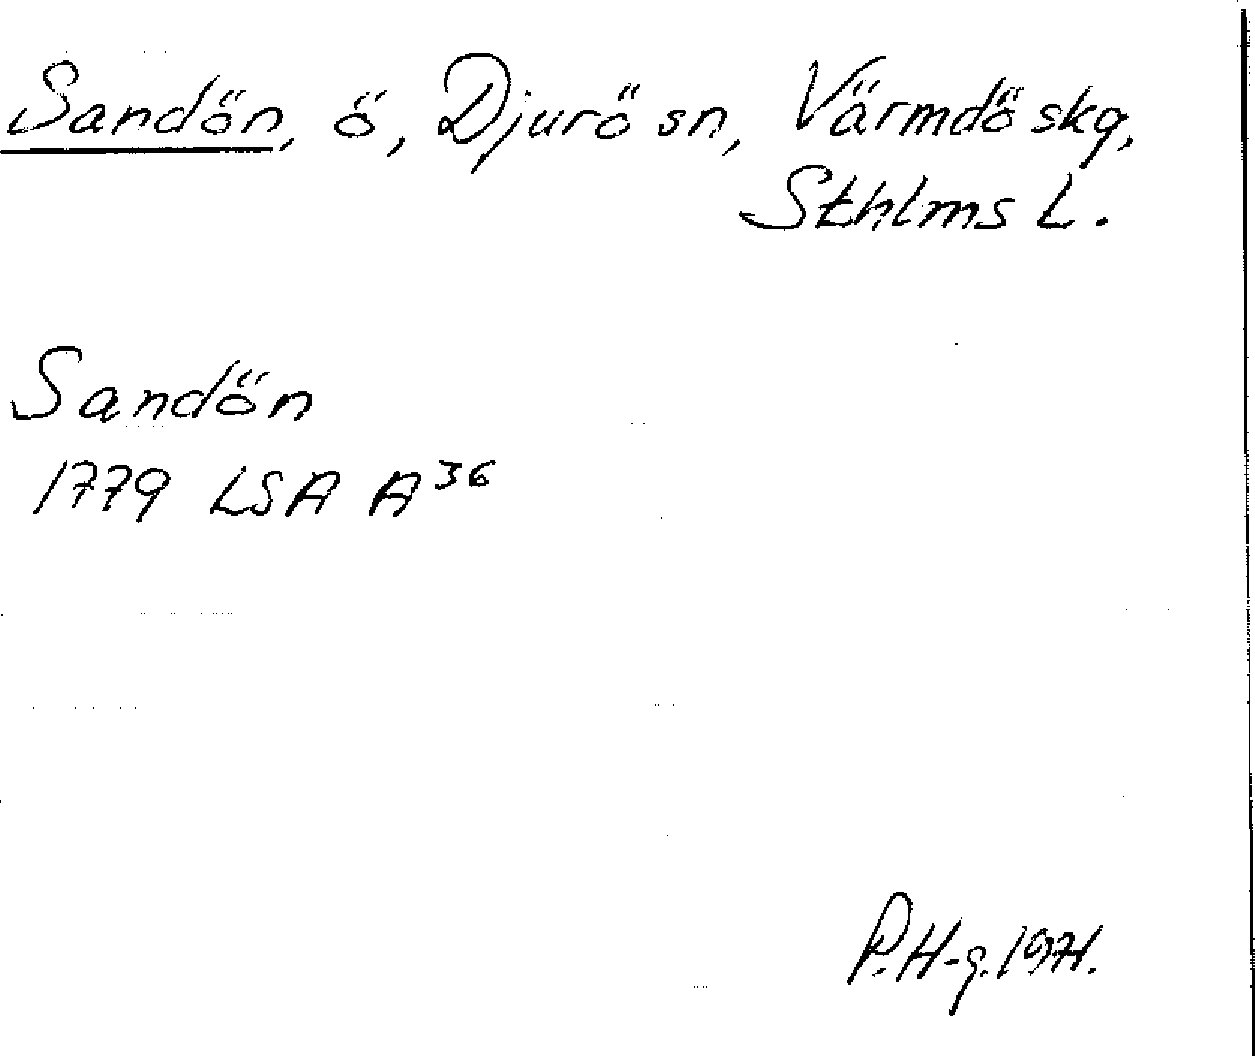 Sandön, ö, Djurö sn, Värmdö skg,
Sthlms L.
Sandön
1779 LSA A 36
P. H-g. 1971.